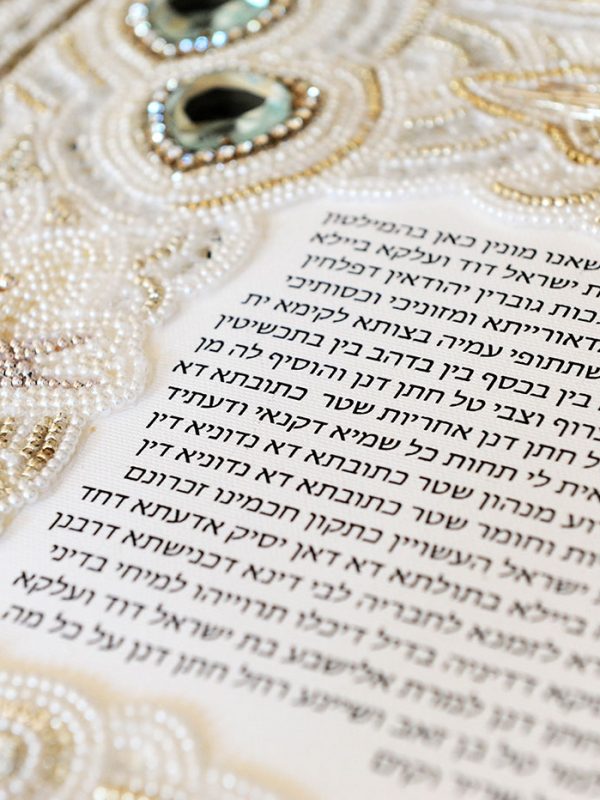 שאנו מונין כאן בהמילטון
ת ישראל דוד ועלקא ביילא
כות גוברין יהודאין דפלחין
דאורייתא ומזוניכי וכסותיכי
שתתופי עמיה בצותא לקימא ית
בין בכסף בין בדהב בין בתכשיטין
ברוף וצבי טל חתן דנן והוסיף לה מן
ל חתן דנן אחריות שטר כתובתא דא
אית לי תחות כל שמיא דקנאי ודעתיד
וע מנהון שטר כתובתא דא נדוניא דין
ות וחומר שטר כתובתא דא נדוניא דין
ישראל העשויין כתקון חכמינו זכרונם
ביילא בתולתא דא דאן יסיק אדעתא דחד
א לזמנא לחבריה לבי דינא דכנישתא דרבנן
יקא דדיניה בדיל דיכלו תרוייהו למיחי בדיני
דנן למרת אלישבע בת ישראל דוד ועלקא
טל בן זאב ושיינע רחל חתן דנן על כל מה